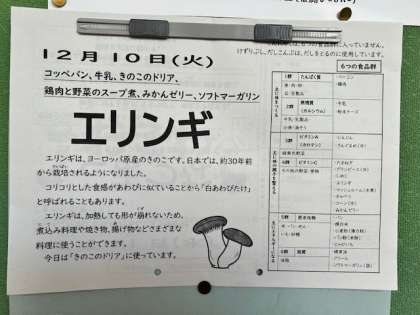 12月10日(火)
コッペパン、牛乳、きのこのドリア、
鶏肉と野菜のスープ煮、みかんゼリー、ソフトマーガリン
エリンギ
エリンギは、ヨーロッパ原産のきのこです。日本では、約30年前
から栽培されるようになりました。
コリコリとした食感があわびに似ていることから「白あわびたけ」
と呼ばれることもあります。
エリンギは、加熱しても形が崩れないため、
煮込み料理や焼き物、揚げ物などさまざまな
料理に使うことができます。
今日は「きのこのドリア」に使っています。
6つの食品群
1群 たんぱく質
ベーコン
鶏肉
2群 無機質
(カルシウム)
牛乳
粉末チーズ
牛乳・乳製品
小魚・海そう
3群 ビタミンA
(カロテン)
にんじん
緑黄色野菜
4群 ビタミンC
その他の野菜・果物
たまねぎ
しめじ
エリンギ
みかんゼリー
5群 炭水化物
パン
6群 脂質
ソフトマーガリン